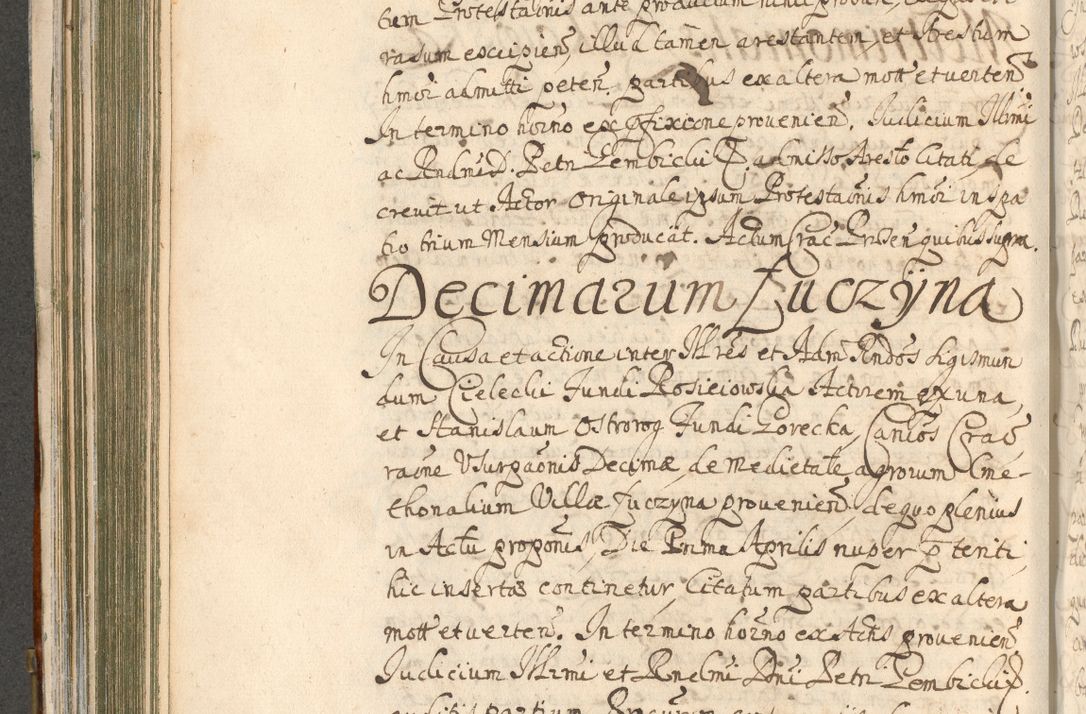 tum Protestaõnis ante productum
rasum excipieñ, illud tamen arestantem, et Arestum
hmõi admitti peteñ, partibus ex altera mott et verteñ.
In termino horño ex Affixione provenieñ. Judicium Illmi
ac Rndmi D. Petri Gembicki E. admisso Aresto Citati, de
crevit ut Actor Originale ipsum Protestaõnis hmõi in spa
tio trium Mensium producat. Actum Crac̃ Præsen quibus supra.
Decimarum Łuczÿna
In Causa et actione inter Illres et Adm Rndos Sigismun
dum Cielecki Fundi Rosieiowska Actorem ex una,
et Stanislaum Ostrorog Fundi Gorecka, Canĉos Crac̃
raõne Usurgaõnis Decimæ, de medietate agrorum Cme-
thonalium Villæ Łuczyna provenieñ, de quo plenius
in Actu propõnis, Die Prima Aprilis nuper p̃teriti
hic insertæ continetur, Citatum partibus ex altera
mott et verteñ. In termino horño ex Actis provenieñ.
Judicium Illrmi et Rndmi Dni Petri Gembicki E.